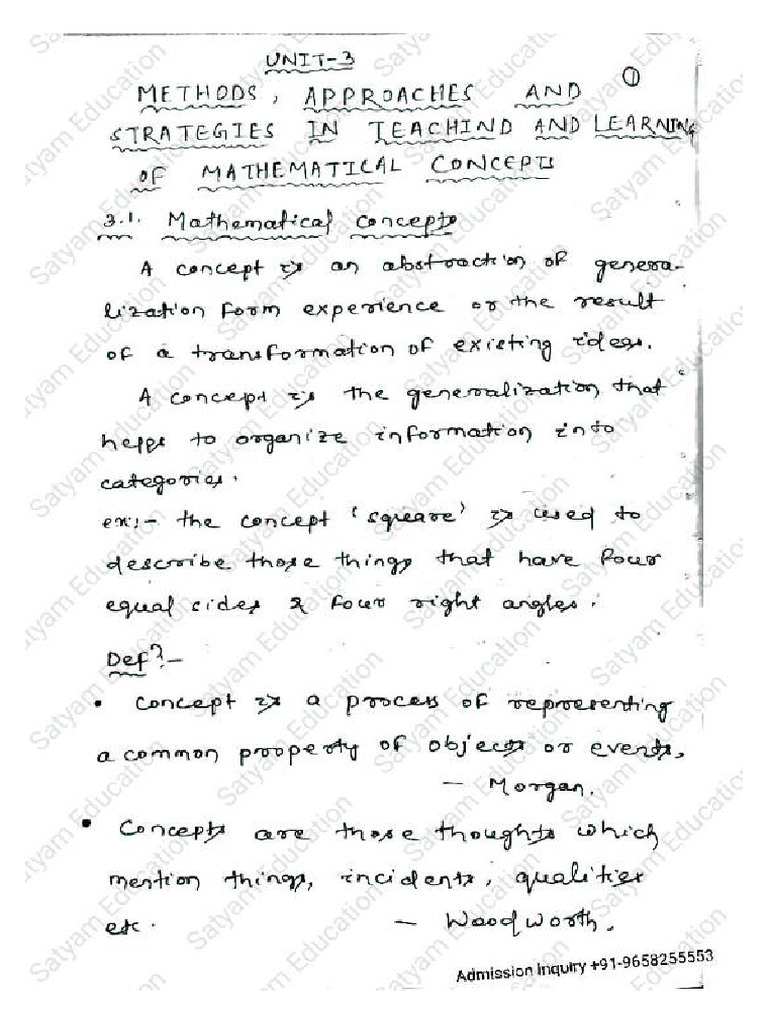 UNIT-3
①
METHODS, APPROACHES AND
STRATEGIES IN TEACHIND AND LEARNING
OF MATHEMATICAL CONCEPTS
3.1. Mathematical concepts
A concept is an abstraction of genera-
lization form experience or the result
of a transformation of existing ideas.
A concept is the generalization that
helps to organize information into
categories.
ex:- the concept 'square' is used to
describe those things that have four
equal sides & four right angles.
Defⁿ:-
• Concept is a process of representing
a common property of objects or events.
— Morgan.
• Concepts are those thoughts which
mention things, incidents, qualities
etc. — Woodworth.
Admission Inquiry +91-9658255553
Satyam Education